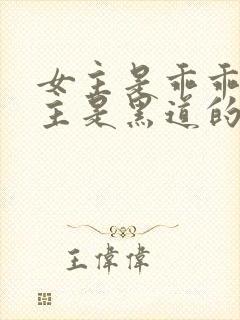 女主是乖乖
主是黑道的
王偉偉